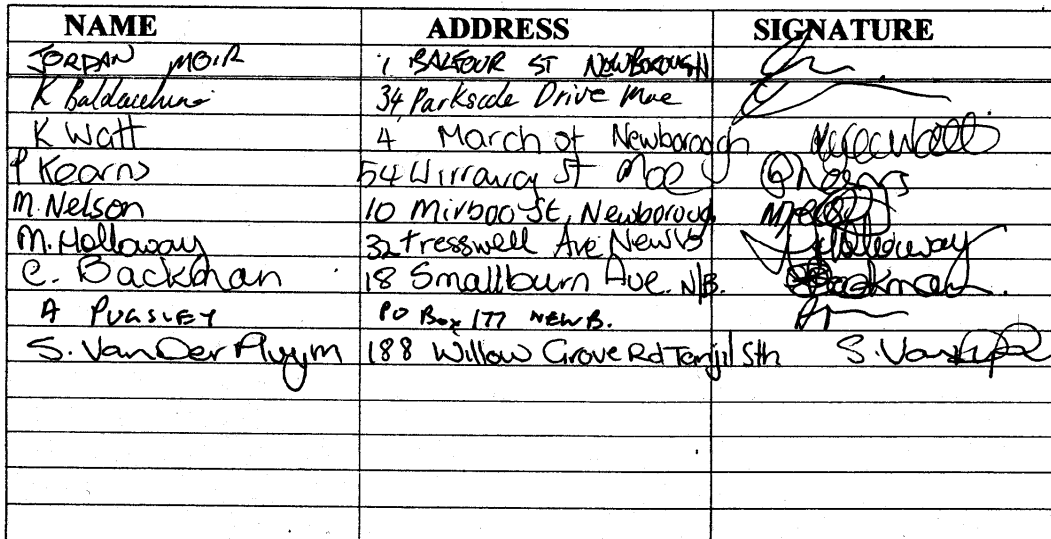 NAME ADDRESS SIGNATURE
JORDAN MOIR 1 BALFOUR ST NEWBOROUGH
K Baldacchino 34 Parkside Drive Moe
K Watt 4 March st Newborough
P Kearns 54 Wirraway St Moe P Kearns
M. Nelson 10 Mirboo St, Newborough
M. Holloway 32 Tresswell Ave NewB Holloway
C. Backman 18 Smallburn Ave. N/B. Backman.
A PUGSLEY PO Box 177 NEWB.
S. Van Der Pluym 188 Willow Grove Rd Tanjil Sth S. Van